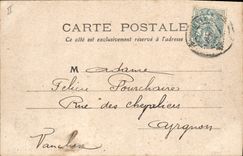 II
CARTE POSTALE
Ce côté est exclusivement réservé à l'adresse
Madame
Félicie Fourchaire
Rue des chapeliers
Avignon
Vaucluse